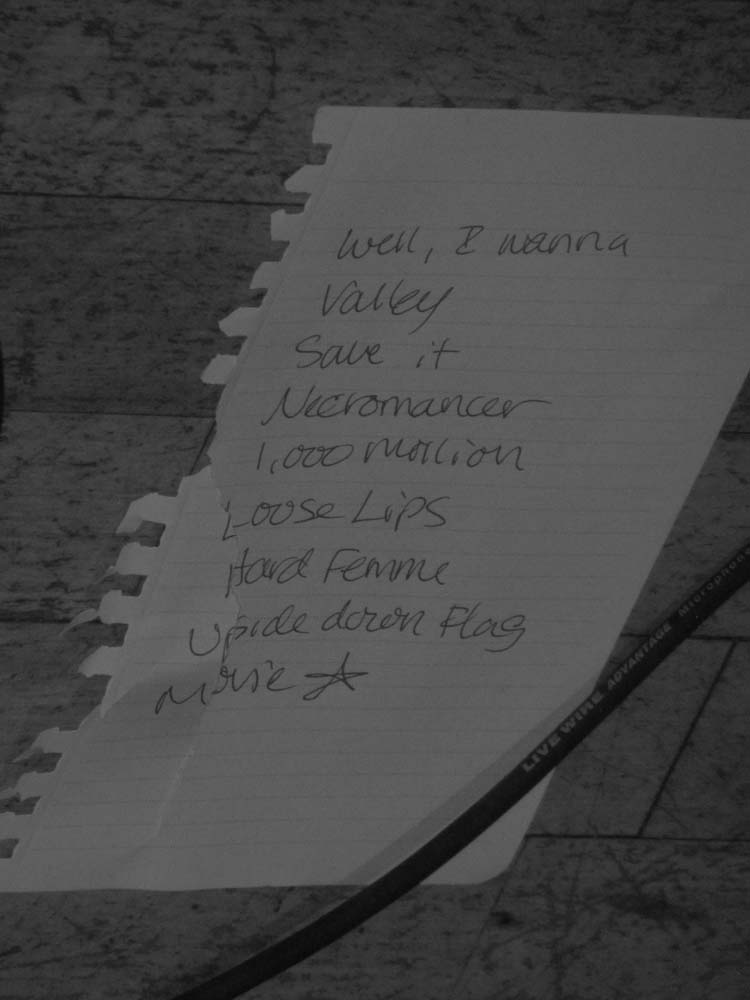 Well, I wanna
Valley
Save it
Necromancer
1,000 Million
Loose Lips
Hard Femme
Upside down Flag
Movie ☆
LIVE WIRE ADVANTAGE Microphone